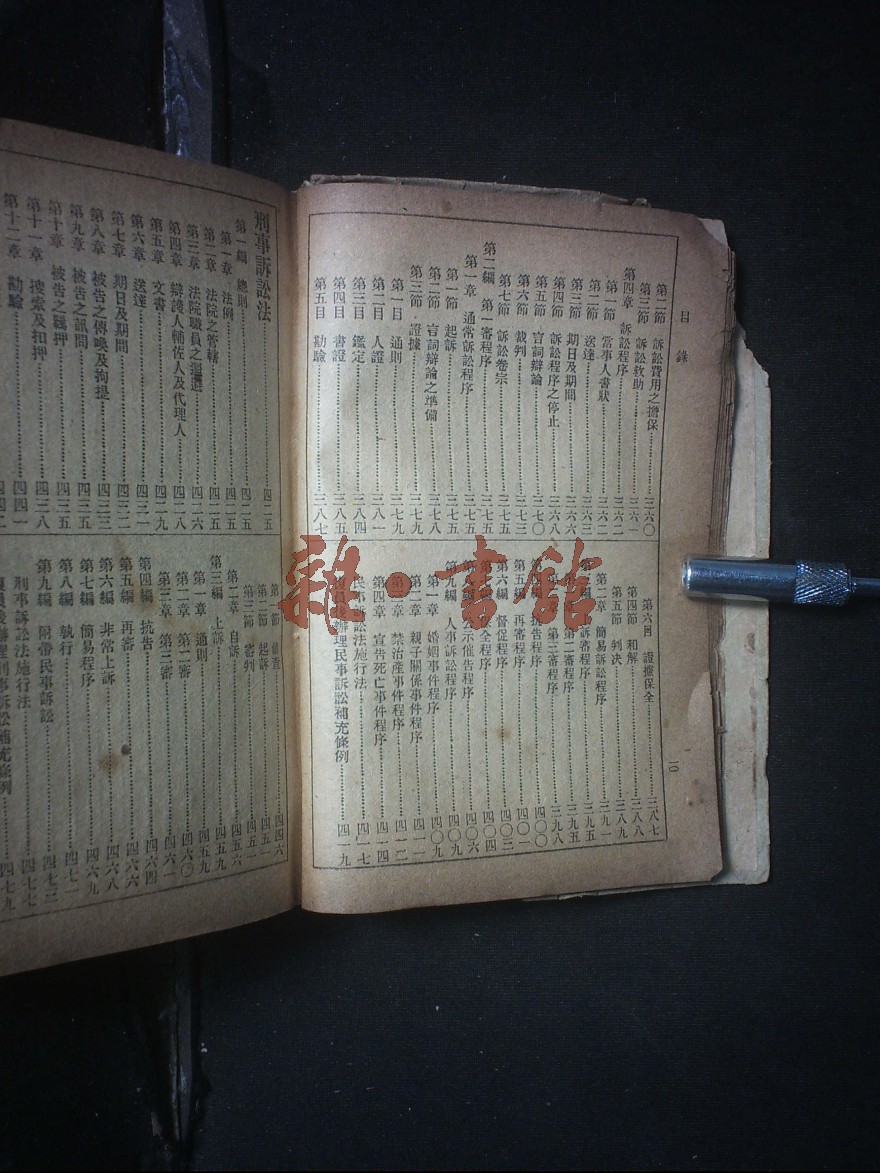 目錄
第二節 訴訟費用之擔保 三六〇
第三節 訴訟救助 三六一
第四章 訴訟程序 三六二
第一節 當事人書狀 三六二
第二節 送達 三六三
第三節 期日及期間 三六六
第四節 訴訟程序之停止 三六八
第五節 言詞辯論 三七〇
第六節 裁判 三七三
第七節 訴訟卷宗 三七五
第二編 第一審程序 三七五
第一章 通常訴訟程序 三七五
第一節 起訴 三七五
第二節 言詞辯論之準備 三七八
第三節 證據 三七九
第一目 通則 三七九
第二目 人證 三八一
第三目 鑑定 三八四
第四目 書證 三八五
第五目 勘驗 三八七
第六目 證據保全 三八七
第四節 和解 三八八
第五節 判決 三八九
第二章 簡易訴訟程序 三九一
訴審程序 三九五
第二審程序 三九五
第三審程序 三九八
抗告程序 四〇〇
第五編 再審程序 四〇一
第六編 督促程序 四〇三
全程序 四〇四
示催告程序 四〇六
第九編 人事訴訟程序 四〇九
第一章 婚姻事件程序 四〇九
第二章 親子關係事件程序 四一一
第三章 禁治產事件程序 四一二
第四章 宣告死亡事件程序 四一四
民事訴訟法施行法 四一七
復員後辦理民事訴訟補充條例 四一九
一〇
刑事訴訟法
第一編 總則 四二五
第一章 法例 四二五
第二章 法院之管轄 四二五
第三章 法院職員之迴避 四二六
第四章 辯護人輔佐人及代理人 四二八
第五章 文書 四二九
第六章 送達 四三一
第七章 期日及期間 四三二
第八章 被告之傳喚及拘提 四三三
第九章 被告之訊問 四三五
第十章 被告之羈押 四三五
第十一章 搜索及扣押 四三八
第十二章 勘驗 四四一
第一節 偵查 四四六
第二節 起訴 四五一
第三節 審判 四五二
第二章 自訴 四五六
第三編 上訴 四五九
第一章 通則 四五九
第二章 第二審 四六〇
第三章 第三審 四六一
第四編 抗告 四六四
第五編 再審 四六六
第六編 非常上訴 四六八
第七編 簡易程序 四六九
第八編 執行 四七一
第九編 附帶民事訴訟 四七三
刑事訴訟法施行法 四七七
復員後辦理刑事訴訟補充條例 四七九
雜·書館